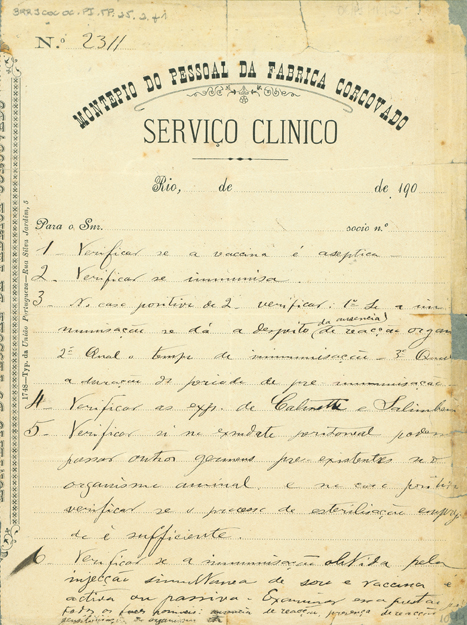 N.º 2311
MONTEPIO DO PESSOAL DA FABRICA CORCOVADO
SERVIÇO CLINICO
Rio, de de 190
Para o Snr. socio n.º
1748—Typ. da União Portugueza—Rua Silva Jardim, 5
1 - Verificar se a vaccina é aseptica
2 - Verificar se immunisa.
3 - No caso positivo de 2 verificar: 1º Se a im
munisação se dá a despeito (da ausencia) de reacção organ
2º Qual o tempo de immunisação - 3º Qual
a duração do periodo de pre immunisação
4 - Verificar as exp. de Calmette e Salimbeni
5 - Verificar si no exudato peritoneal podem
passar outros germens pre-existentes no
organismo animal e no caso positivo
verificar se o processo de esterilisação empreg
do é sufficiente.
6 - Verificar se a immunisação obtida pela
injecção simultanea de soro e vaccina é
activa ou passiva. Examinar
ausencia de reacção, presença de reacção